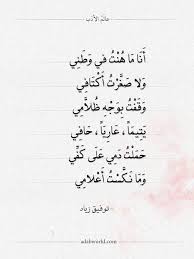 عالم الأدب
أَنَا مَا هُنْتُ فِي وَطَنِي
وَلا صَغَّرْتُ أَكْتَافِي
وَقَفْتُ بِوَجْهِ ظُلَّامِي
يَتِيمَاً ، عَارِيَاً ، حَافِي
حَمَلْتُ دَمِي عَلَى كَفِّي
وَمَا نَكَّسْتُ أَعْلامِي
توفيق زياد
adabworld.com